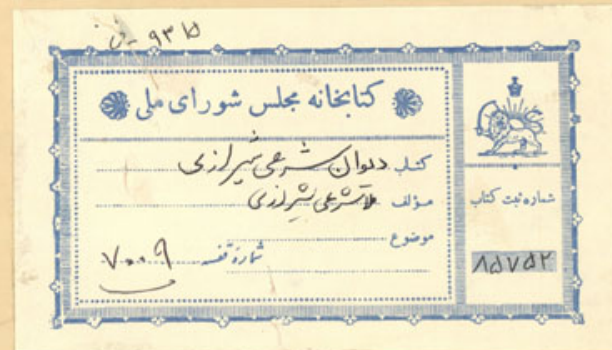 ۹۳۱۵ - ن
کتابخانه مجلس شورای ملی
کتاب دیوان شرعی شیرازی
مؤلف ملا شرعی شیرازی
موضوع
شماره قفسه ۷۰۰۹
شماره ثبت کتاب
۸۵۷۵۲